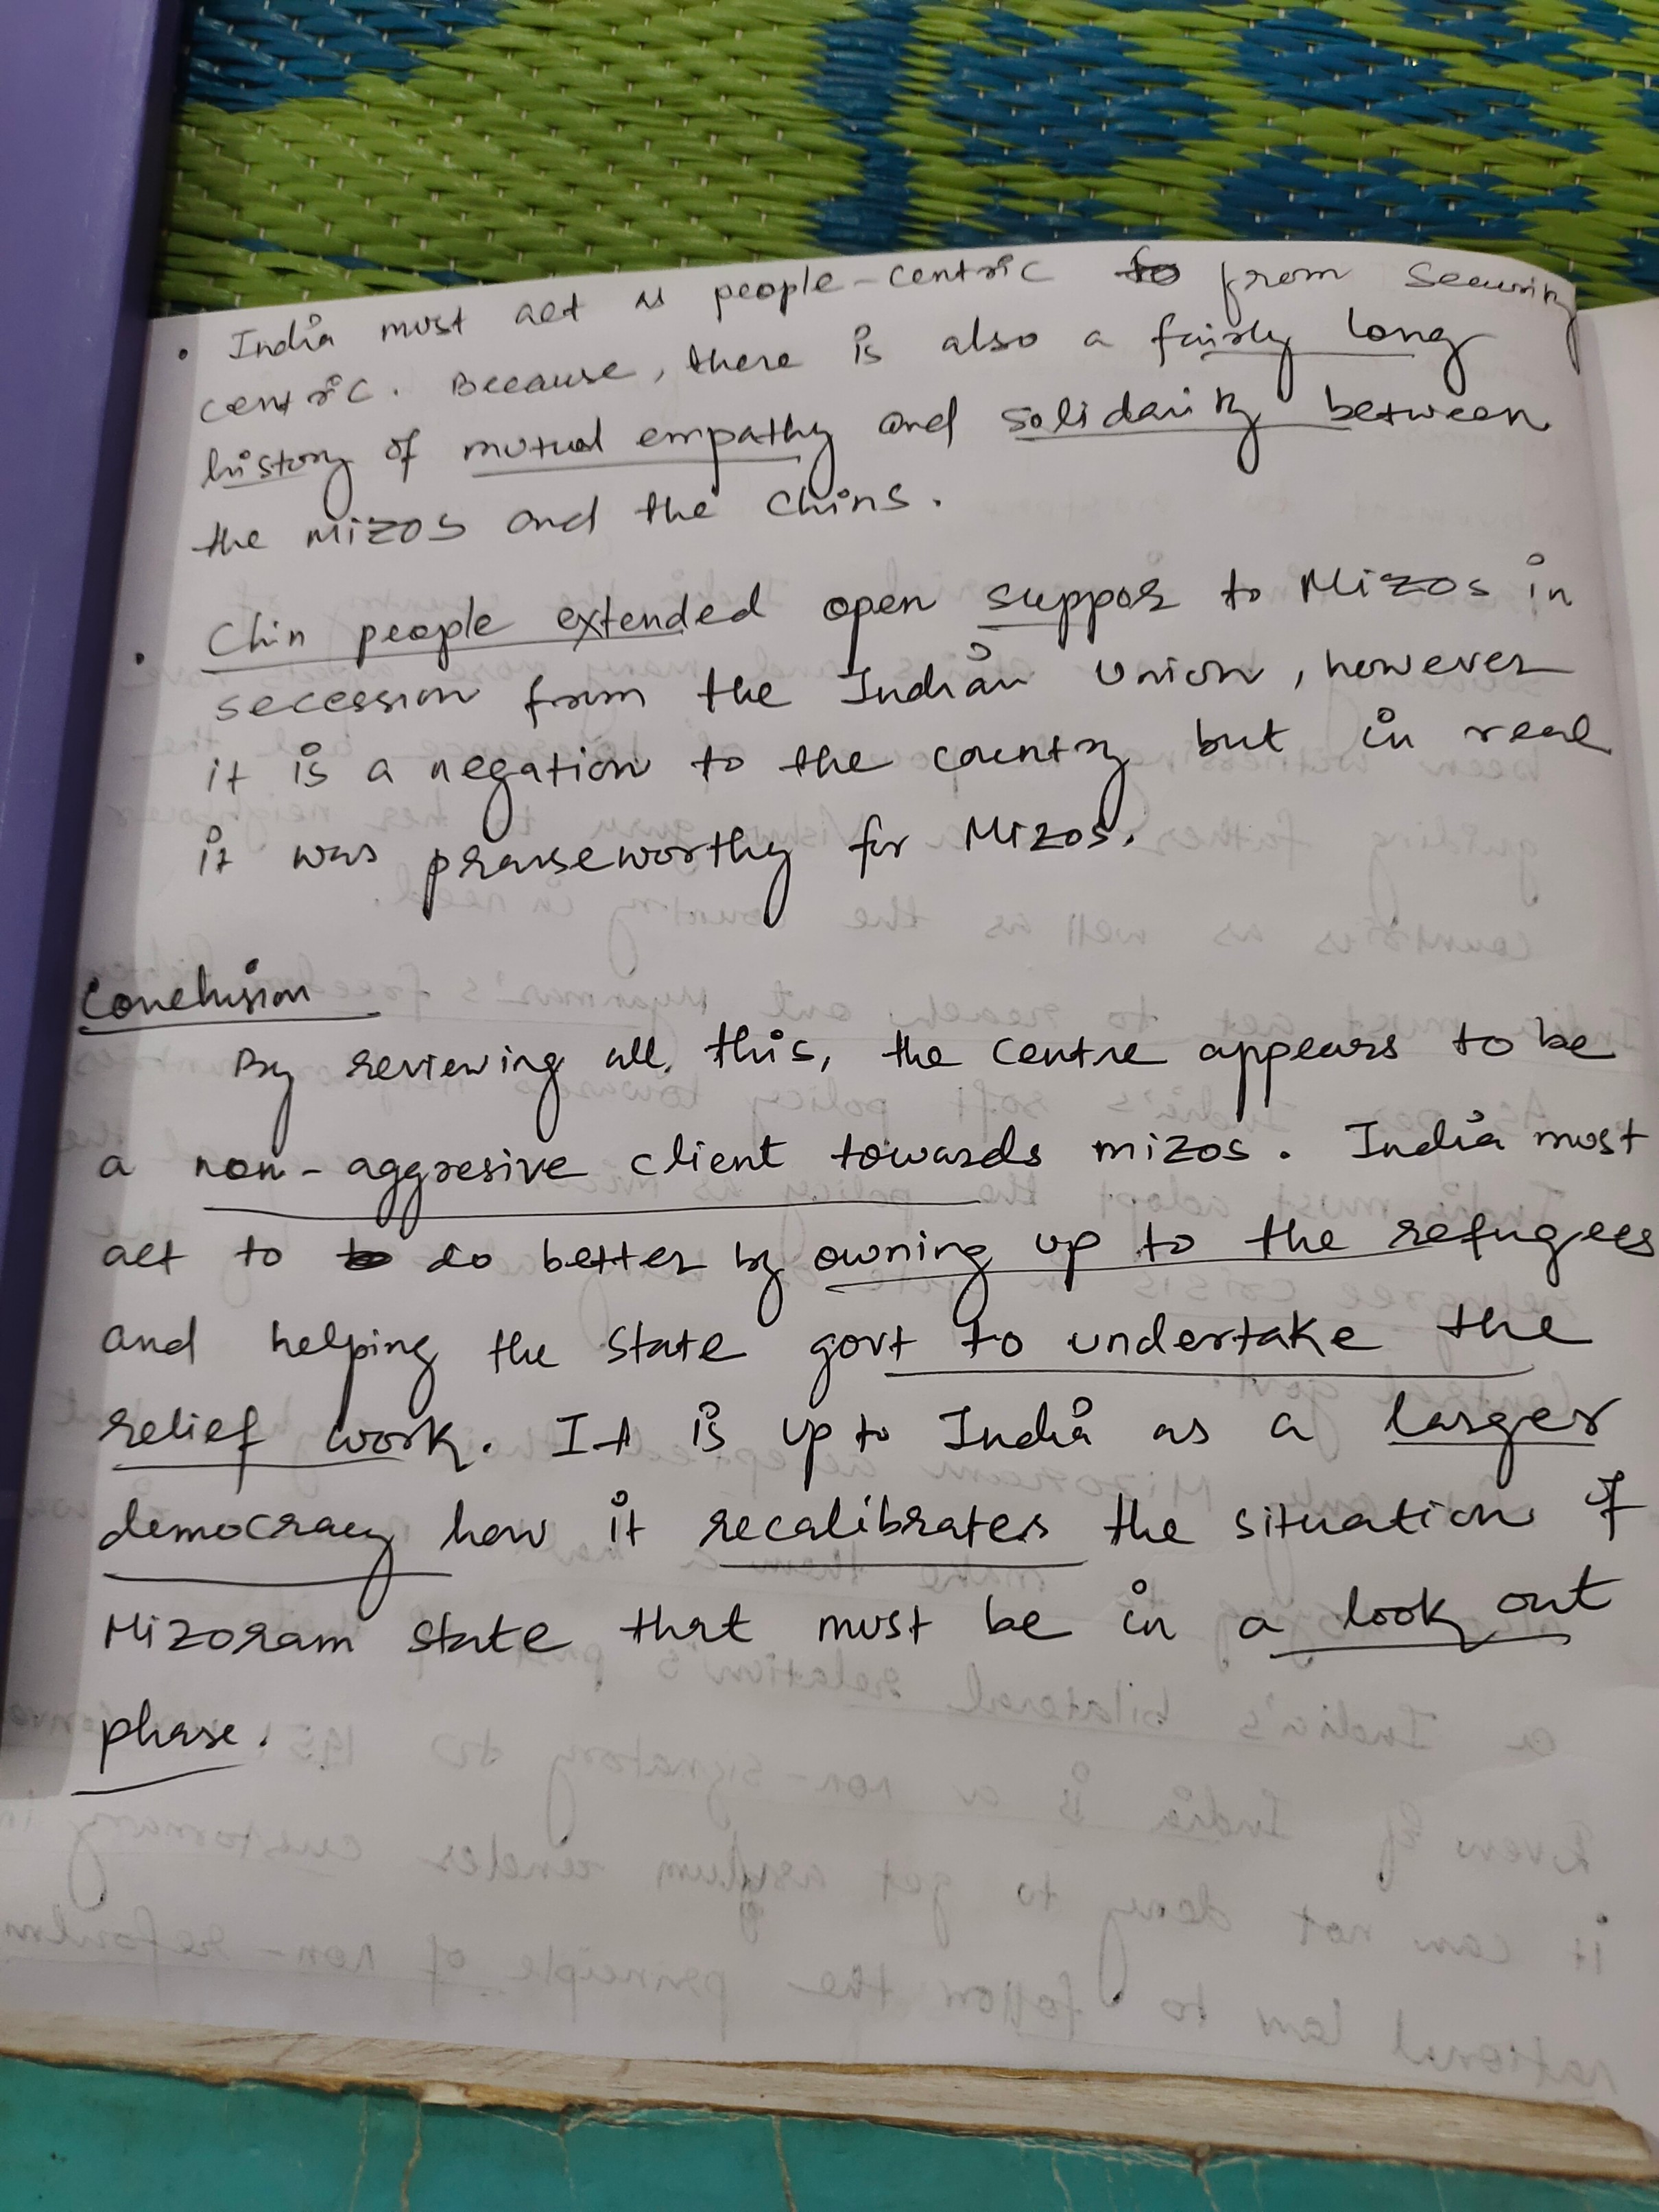 • India must act as people-centric from security
centric. Because, there is also a fairly long
history of mutual empathy and solidarity between
the Mizos and the Chins.
• Chin people extended open suppor to Mizos in
secession from the Indian Union, however
it is a negation to the country but in real
it was praiseworthy for Mizos.
Conclusion
By reviewing all this, the centre appears to be
a non-aggresive client towards mizos. India must
act to do better by owning up to the refugees
and helping the state govt to undertake the
relief work. It is up to India as a larger
democracy how it recalibrates the situation of
Mizoram state that must be in a look out
phase.